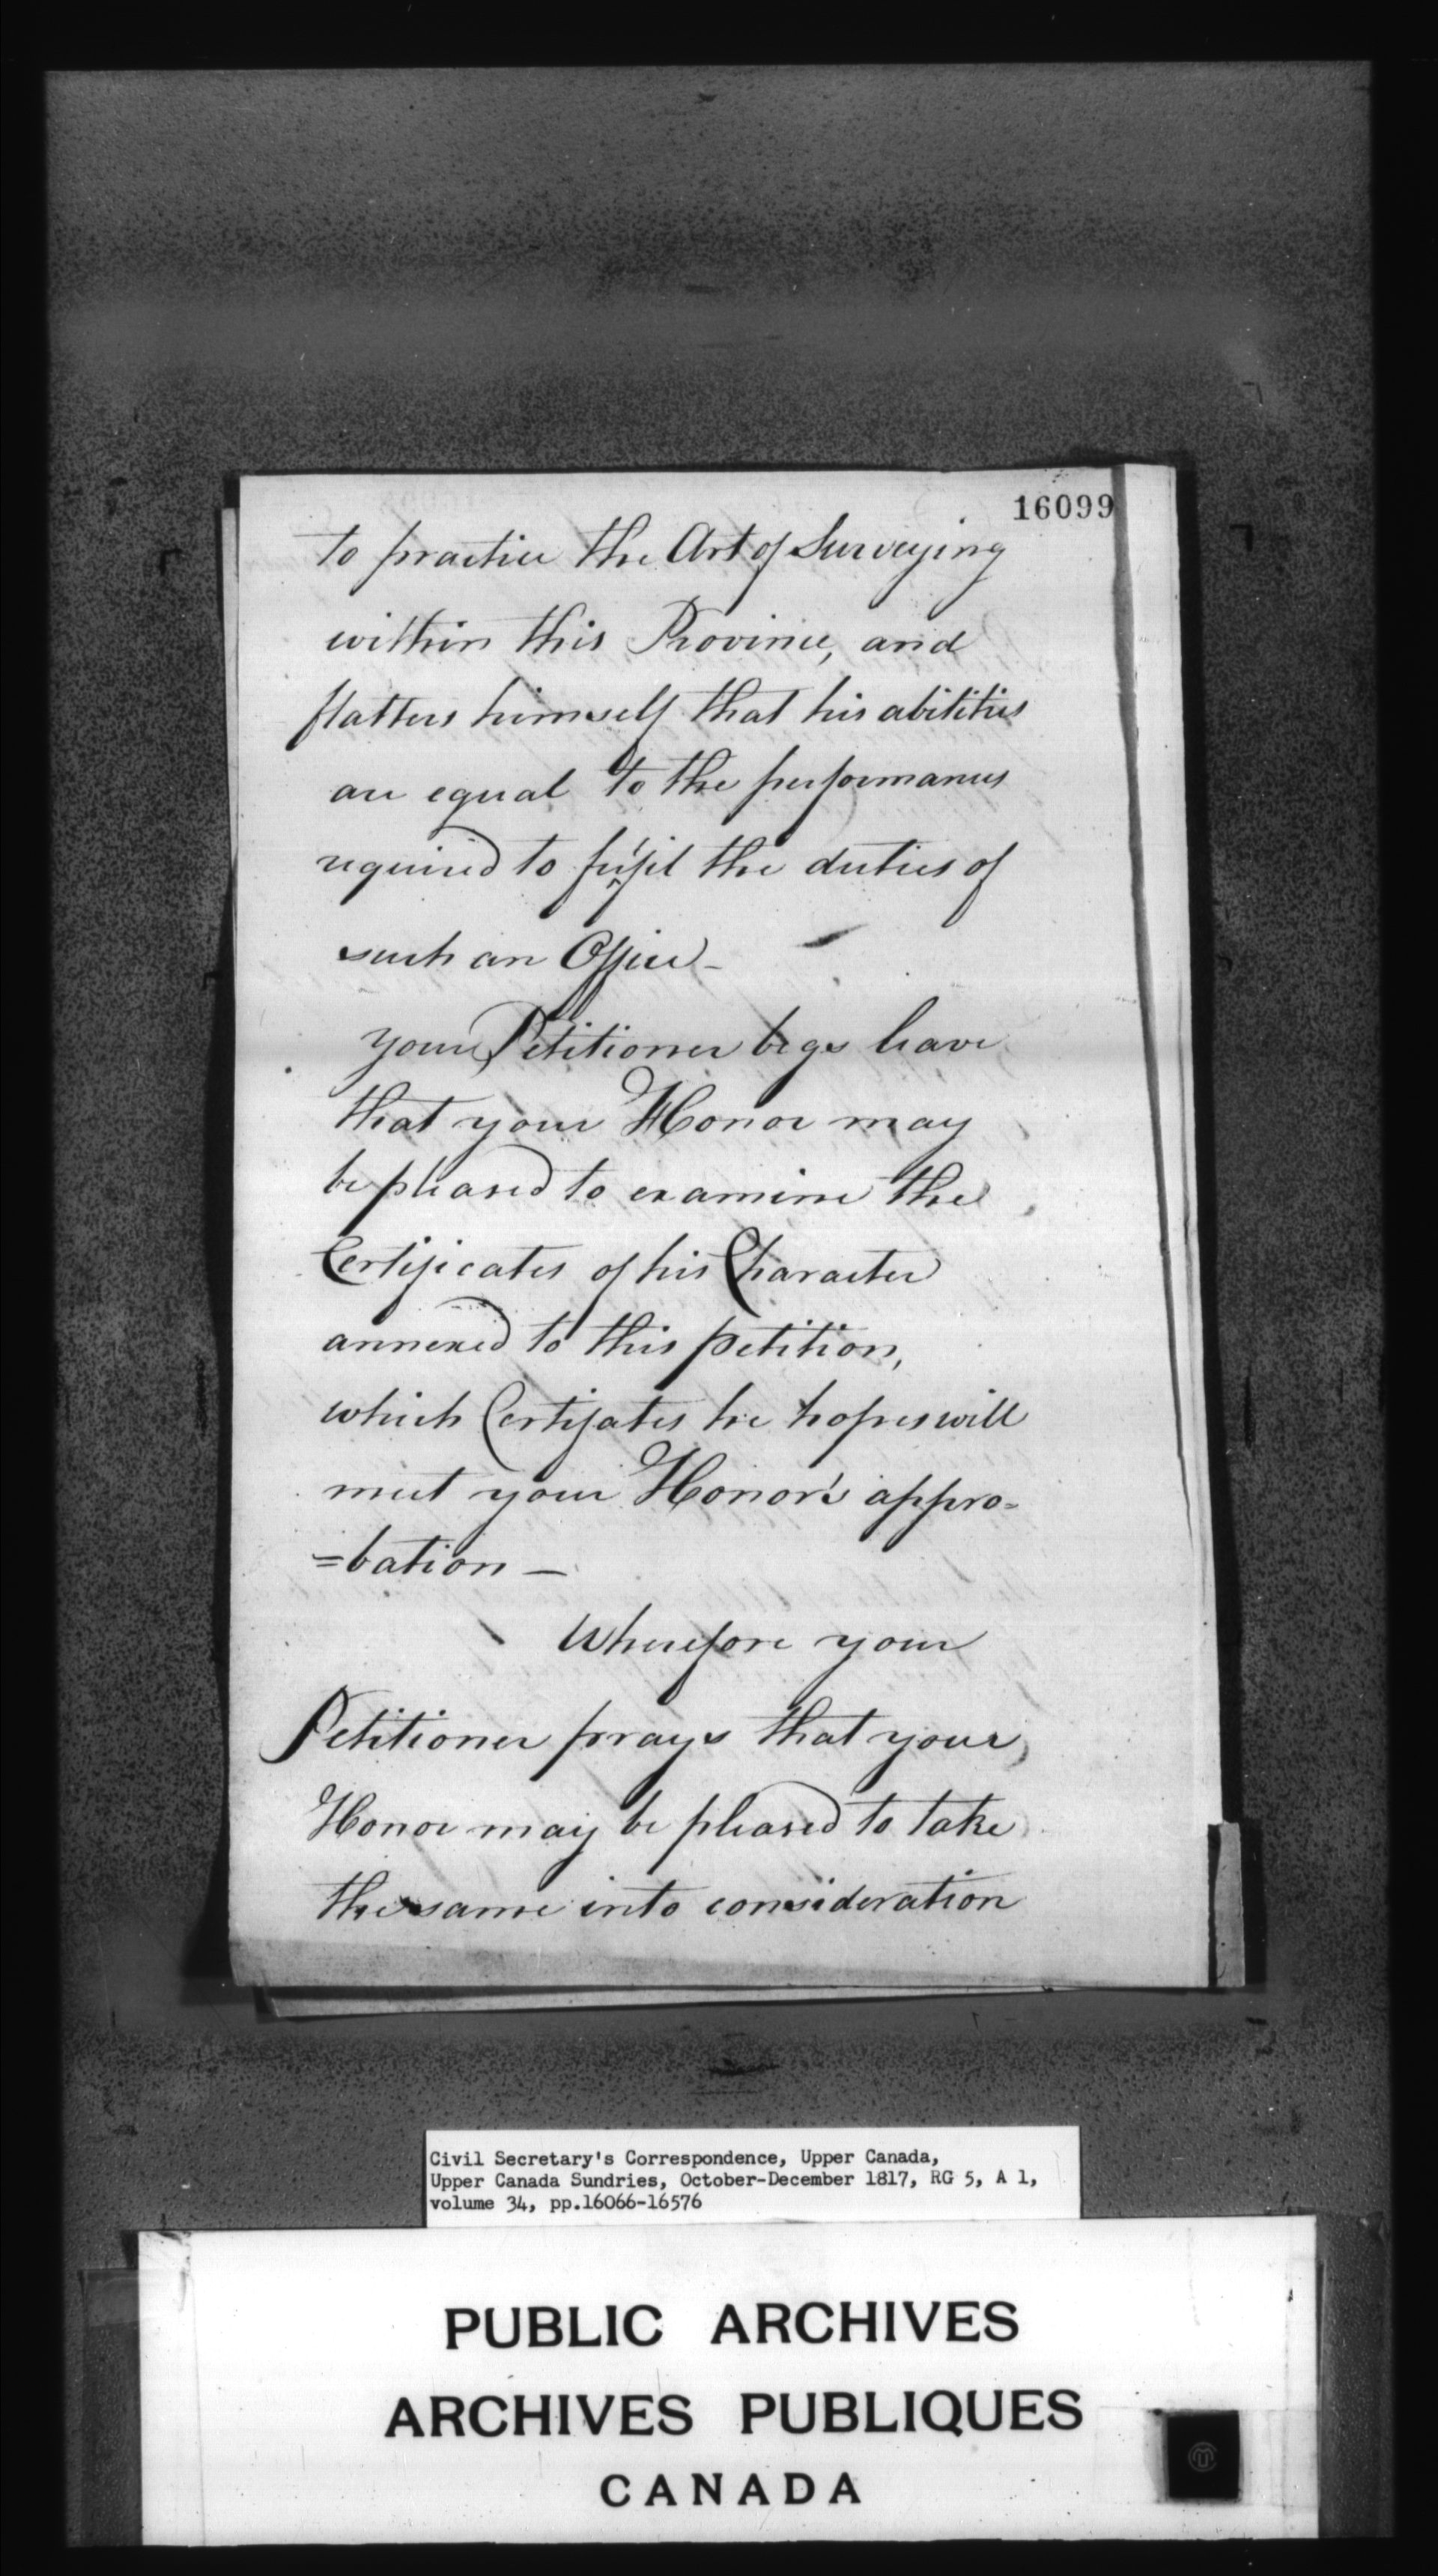 16099
to practice the Art of Surveying
within this Province, and
flatters himself that his abilities
are equal to the performances
required to fulfil the duties of
such an Office –
your Petitioner begs leave
that your Honor may
be pleased to examine the
Certificates of his Character
annexed to this petition,
which Certifates he hopes will
meet your Honor's appro=
=bation –
Wherefore your
Petitioner prays that your
Honor may be pleased to take
the same into consideration
Civil Secretary's Correspondence, Upper Canada,
Upper Canada Sundries, October-December 1817, RG 5, A 1,
volume 34, pp.16066-16576
PUBLIC ARCHIVES
ARCHIVES PUBLIQUES
CANADA